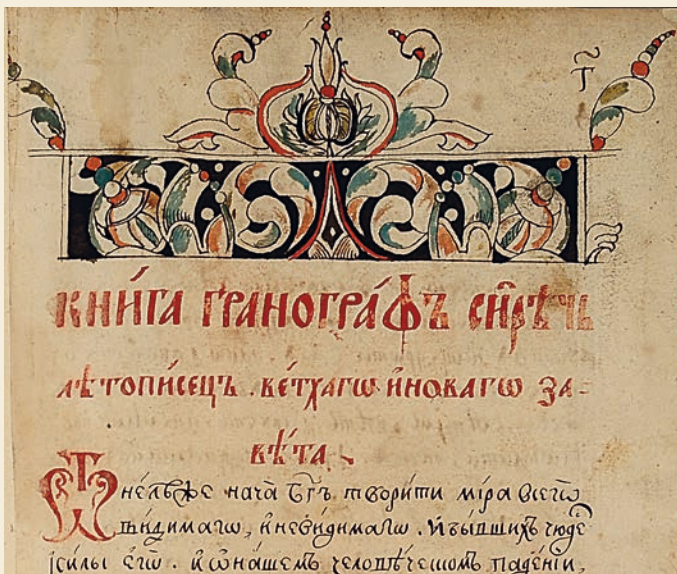 г҃
КНИ́ГА ГРАНОГРА́ФЪ СИ́РѢЧЬ
лѣтописецъ . ве́тхагѡ и новагѡ за-
вѣ́та
Ѿнелѣже нача̀ Бг҃ъ твори́ти мі́ра всегѡ̀
ви́димагѡ , и неви́димагѡ . И бы́вшихъ чюде
и силы егѡ̀ . и ѡ нашемъ человѣ́чесшомъ паде́нїи ,